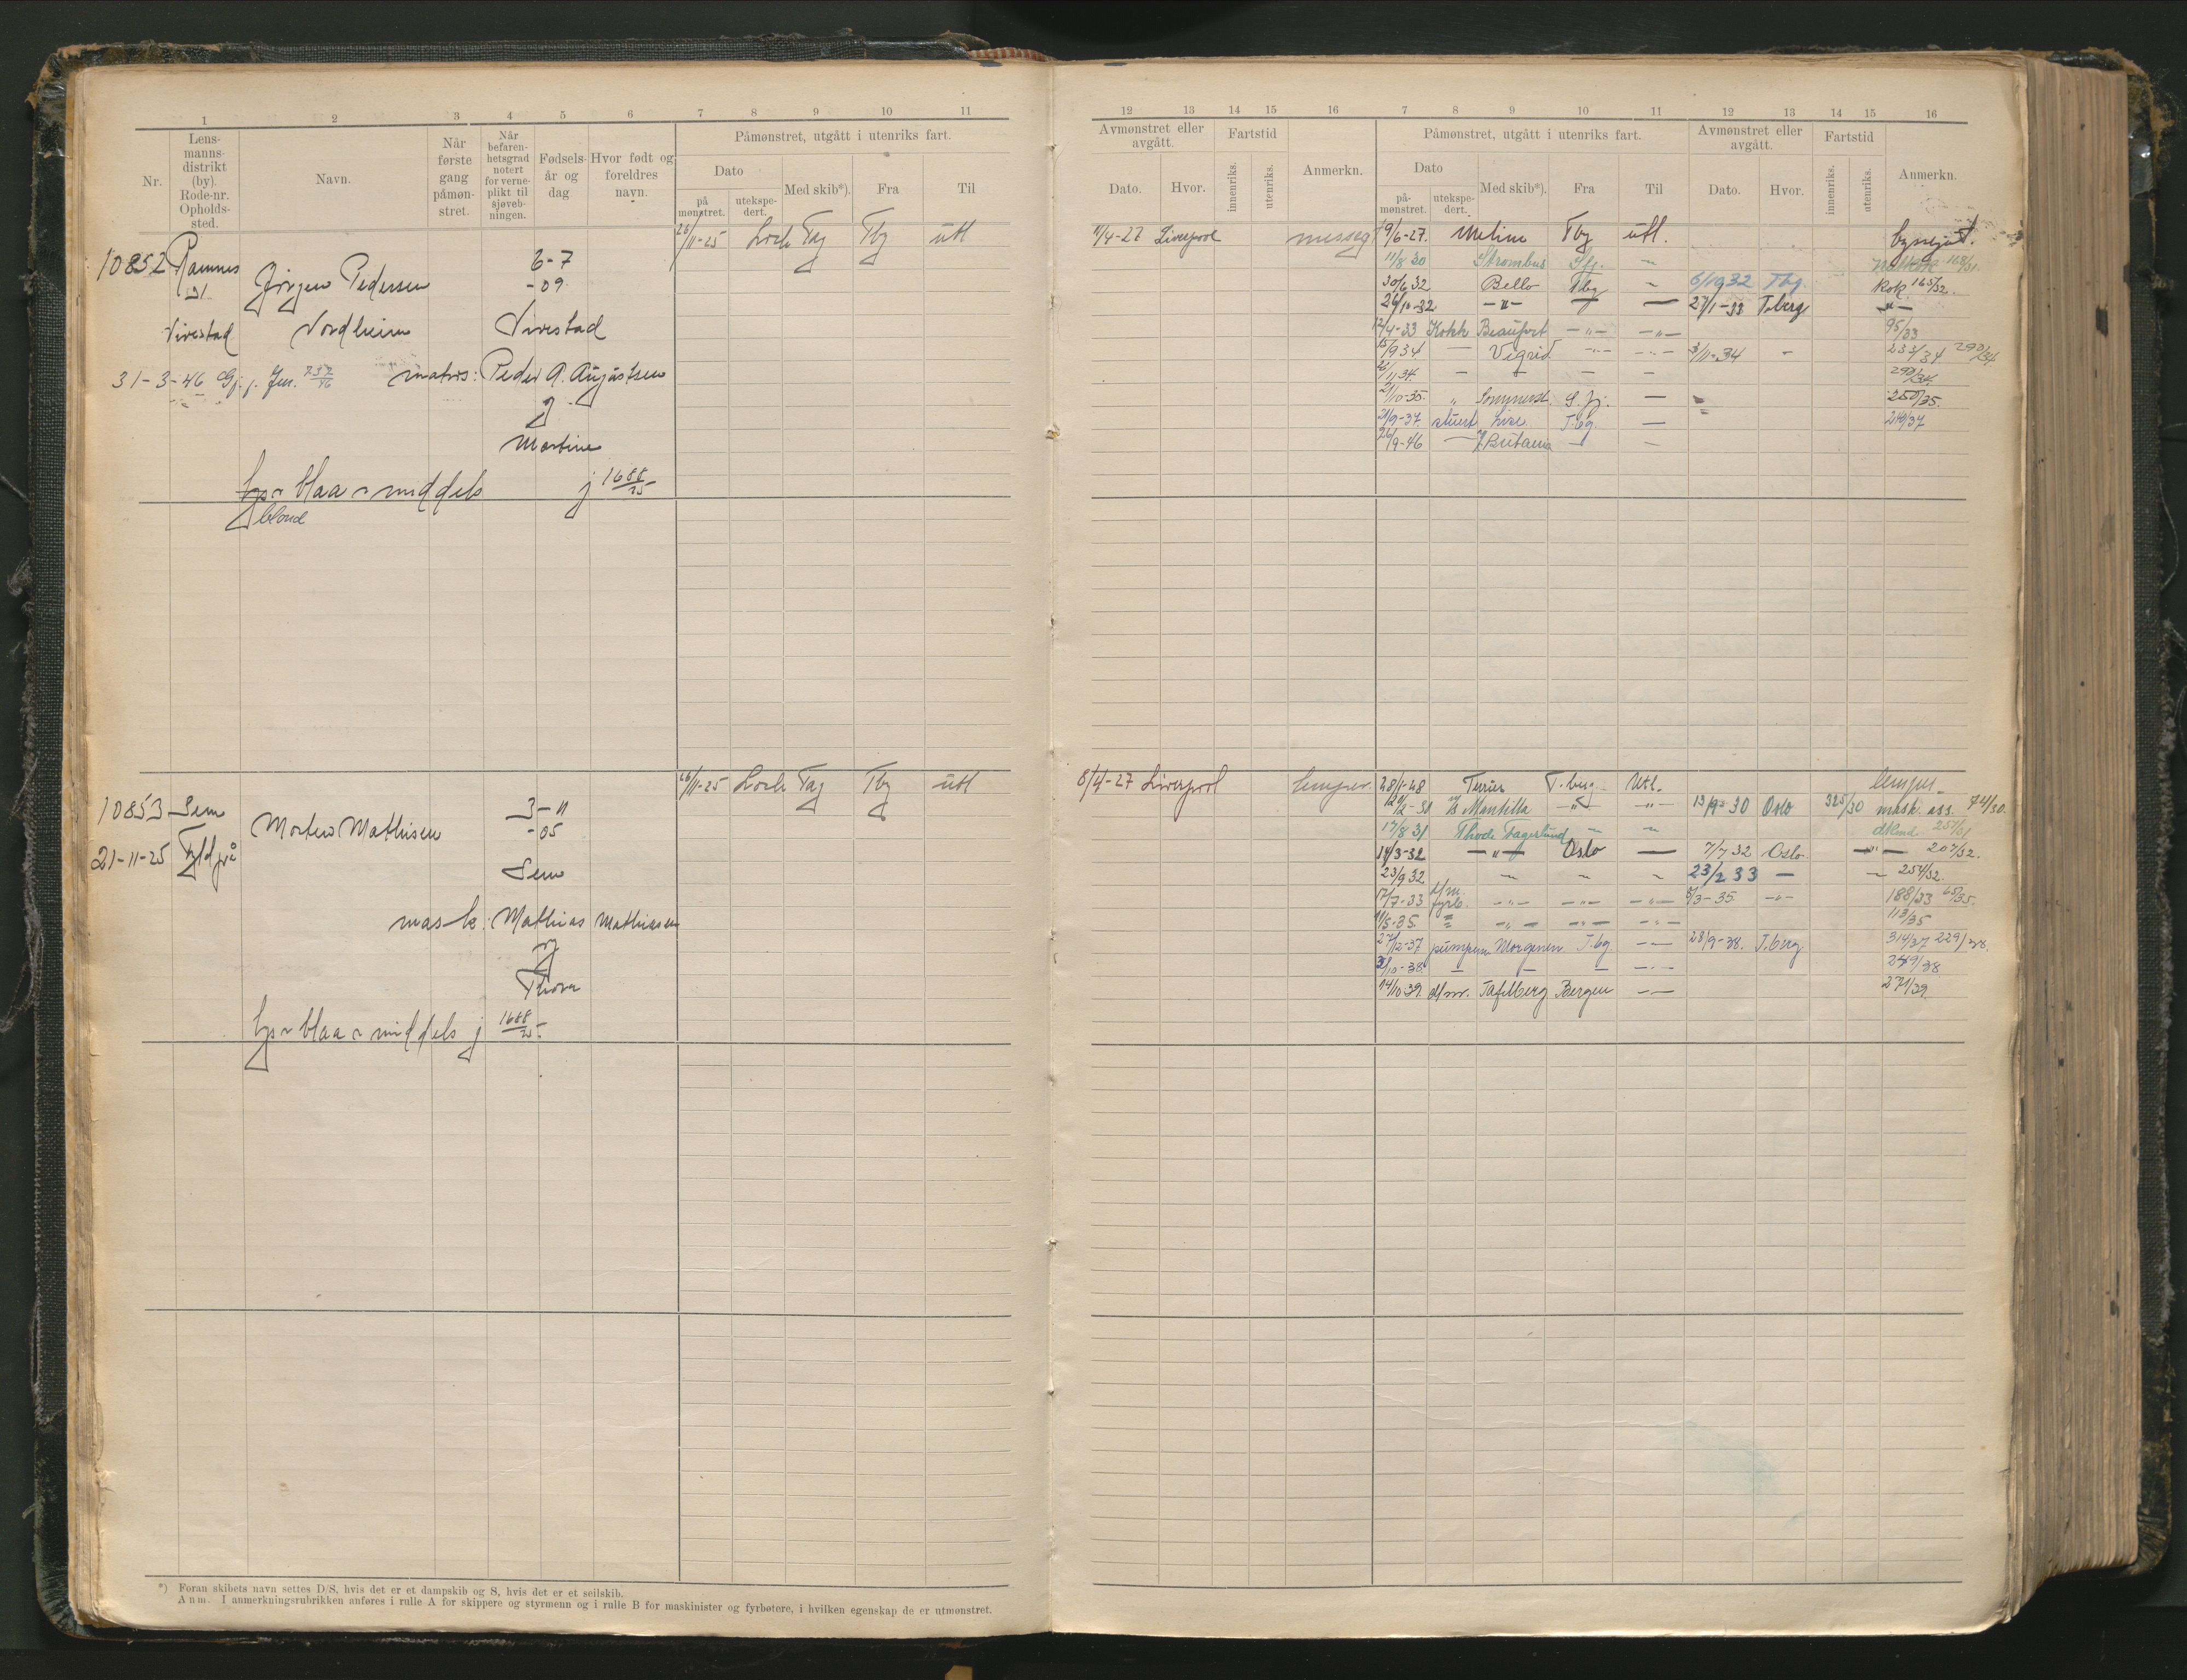 1 2 3 4 5 6 7 8 9 10 11
Nr.
Lens-
manns-
distrikt
(by).
Rode-nr.
Opholds-
sted.
Navn.
Når
første
gang
påmøn-
stret.
Når
befaren-
hetsgrad
notert
for verne-
plikt til
sjøveb-
ningen.
Fødsels-
år og
dag
Hvor født og
foreldres
navn.
Påmønstret, utgått i utenriks fart.
Dato
på
mønstret.
utekspe-
dert.
Med skib*).
Fra
Til
10852 Ramnes
Jörgen Pedersen
6-7
-09
Virestad Nordheim Virestad
31-3-46 matros: Peder A. Augustsen
g
Martine
lys ~ blaa ~ middels j 1688/25
blond
26/11-25 Loch Tay Tbg utl
10853 Sem
Morten Mathisen
3-11
-05
21-11-25
Sem
mask: Mathias Mathiasen
g
Thora
lys ~ blaa ~ middels j 1688/25
26/11-25 Loch Tay Tbg utl
*) Foran skibets navn settes D/S, hvis det er et dampskib og S, hvis det er et seilskib.
Anm. I anmerkningsrubrikken anføres i rulle A for skippere og styrmenn og i rulle B for maskinister og fyrbøtere, i hvilken egenskap de er utmønstret.
12 13 14 15 16 7 8 9 10 11 12 13 14 15 16
Avmønstret eller
avgått.
Dato. Hvor.
Fartstid
innenriks. utenriks.
Anmerkn.
Påmønstret, utgått i utenriks fart.
Dato
på-
mønstret.
utekspe-
dert.
Med skib*). Fra Til
Avmønstret eller
avgått.
Dato. Hvor.
Fartstid
innenriks. utenriks.
Anmerkn.
11/4-27 Liverpool messeg 9/6-27. Meline Tbg utl. byssegut.
11/8 30 Strombus Sfj. ~ 168/31
30/6 32 Bello Tbg ~ 6/10 32 Tbg. Kok 165/32.
26/10-32 -"- — — 27/1-33 T.berg -"-
12/4-33 Kokk Beaufort -"- -"- 95/33
15/9 34. — Vigrid -"- -"- 3/11-34 - 233/34 290/34
— — — — 290/34.
21/10-35. " S.fj. — 250/35.
21/9-37 stuert Lise T.bg. — 249/37
26/9-46 — Britania — —
8/4-27 Liverpool lemper. 28/1-28 Terrier T.berg Utl. lemper.
Mantilla -"- -"- 30 Oslo 325/30 mask. ass. 74/30.
17/8 31 Thode Fagerlund ~ ~ dkmd 257/31
14/3-32 -"- Oslo — 7/7 32 Oslo. -"- 207/32.
23/9 32 ~ ~ ~ 23/2 33 — ~ 254/32.
17/7-33 fyrb. -"- -"- -"- 5/3-35. -"- 188/33 65/35.
11/5-35. = -"- -"- -"- 113/35
27/12-37 pumpem Morgenen T.bg. — 28/9-38. T.berg. 314/37 229/38.
3/10-38. — — — -"- 249/38
14/10 39. d/mr. Tafelberg Bergen — 271/39.